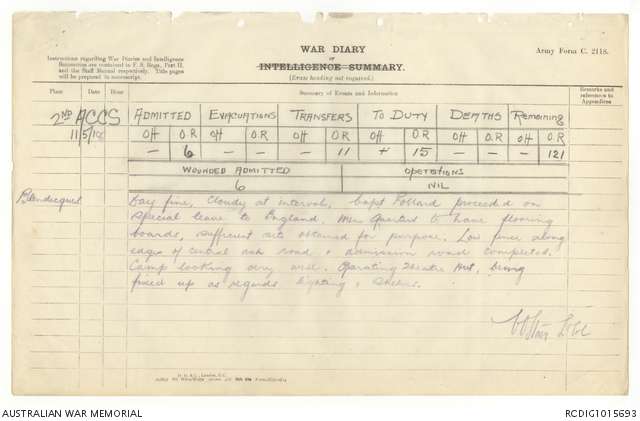 WAR DIARY
or
INTELLIGENCE SUMMARY.
(Erase heading not required.)
Army Form C. 2118.
Instructions regarding War Diaries and Intelligence
Summaries are contained in F. S. Regs., Part II.
and the Staff Manual respectively. Title pages
will be prepared in manuscript.
Place Date Hour Summary of Events and Information Remarks and references to Appendices
2ND ACCS ADMITTED EVACUATIONS TRANSFERS TO DUTY DEATHS Remaining
11/5/18 Off O.R Off O.R Off O.R Off O.R Off O.R Off O.R
— 6 — — — 11 + 15 — — — 121
WOUNDED ADMITTED OPERATIONS
6 NIL
Blendecques Day fine, Cloudy at intervals, Capt Pollard proceeded on
special leave to England. Men Quarters to have flooring
boards, sufficient obtained for purpose. Low fence along
edges of central ash road & admission road completed.
Camp looking very well. Operating Theatre Hut, being
fixed up as regards lighting &
AUSTRALIAN WAR MEMORIAL
RCDIG1015693